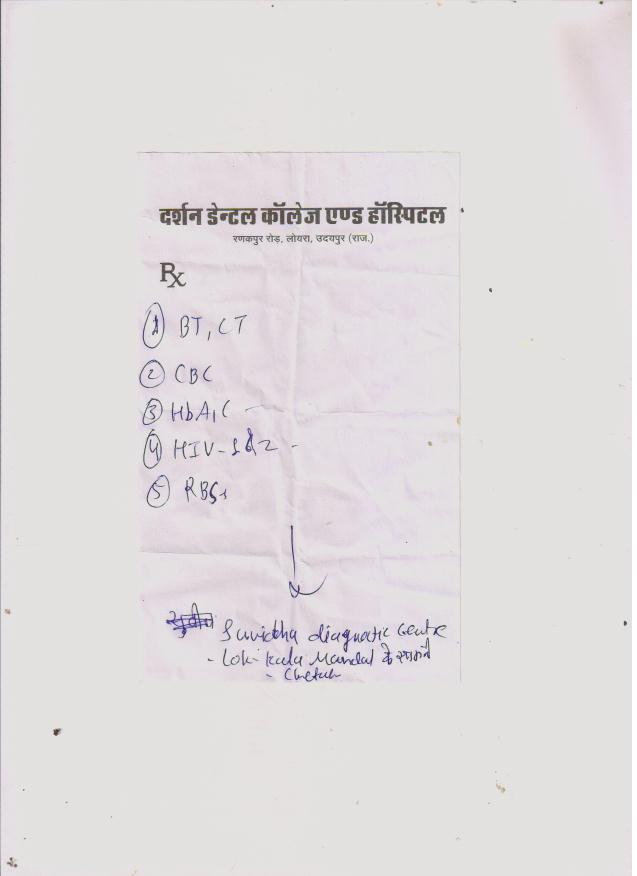 दर्शन डेन्टल कॉलेज एण्ड हॉस्पिटल
रणकपुर रोड़, लोयरा, उदयपुर (राज.)
Rx
1 BT, CT
2 CBC
3 HbA1C -
4 HIV-1&2 -
5 RBS
Suvidha diagnatic Centre
- Lok kala Mandal के सामने
- Chetak